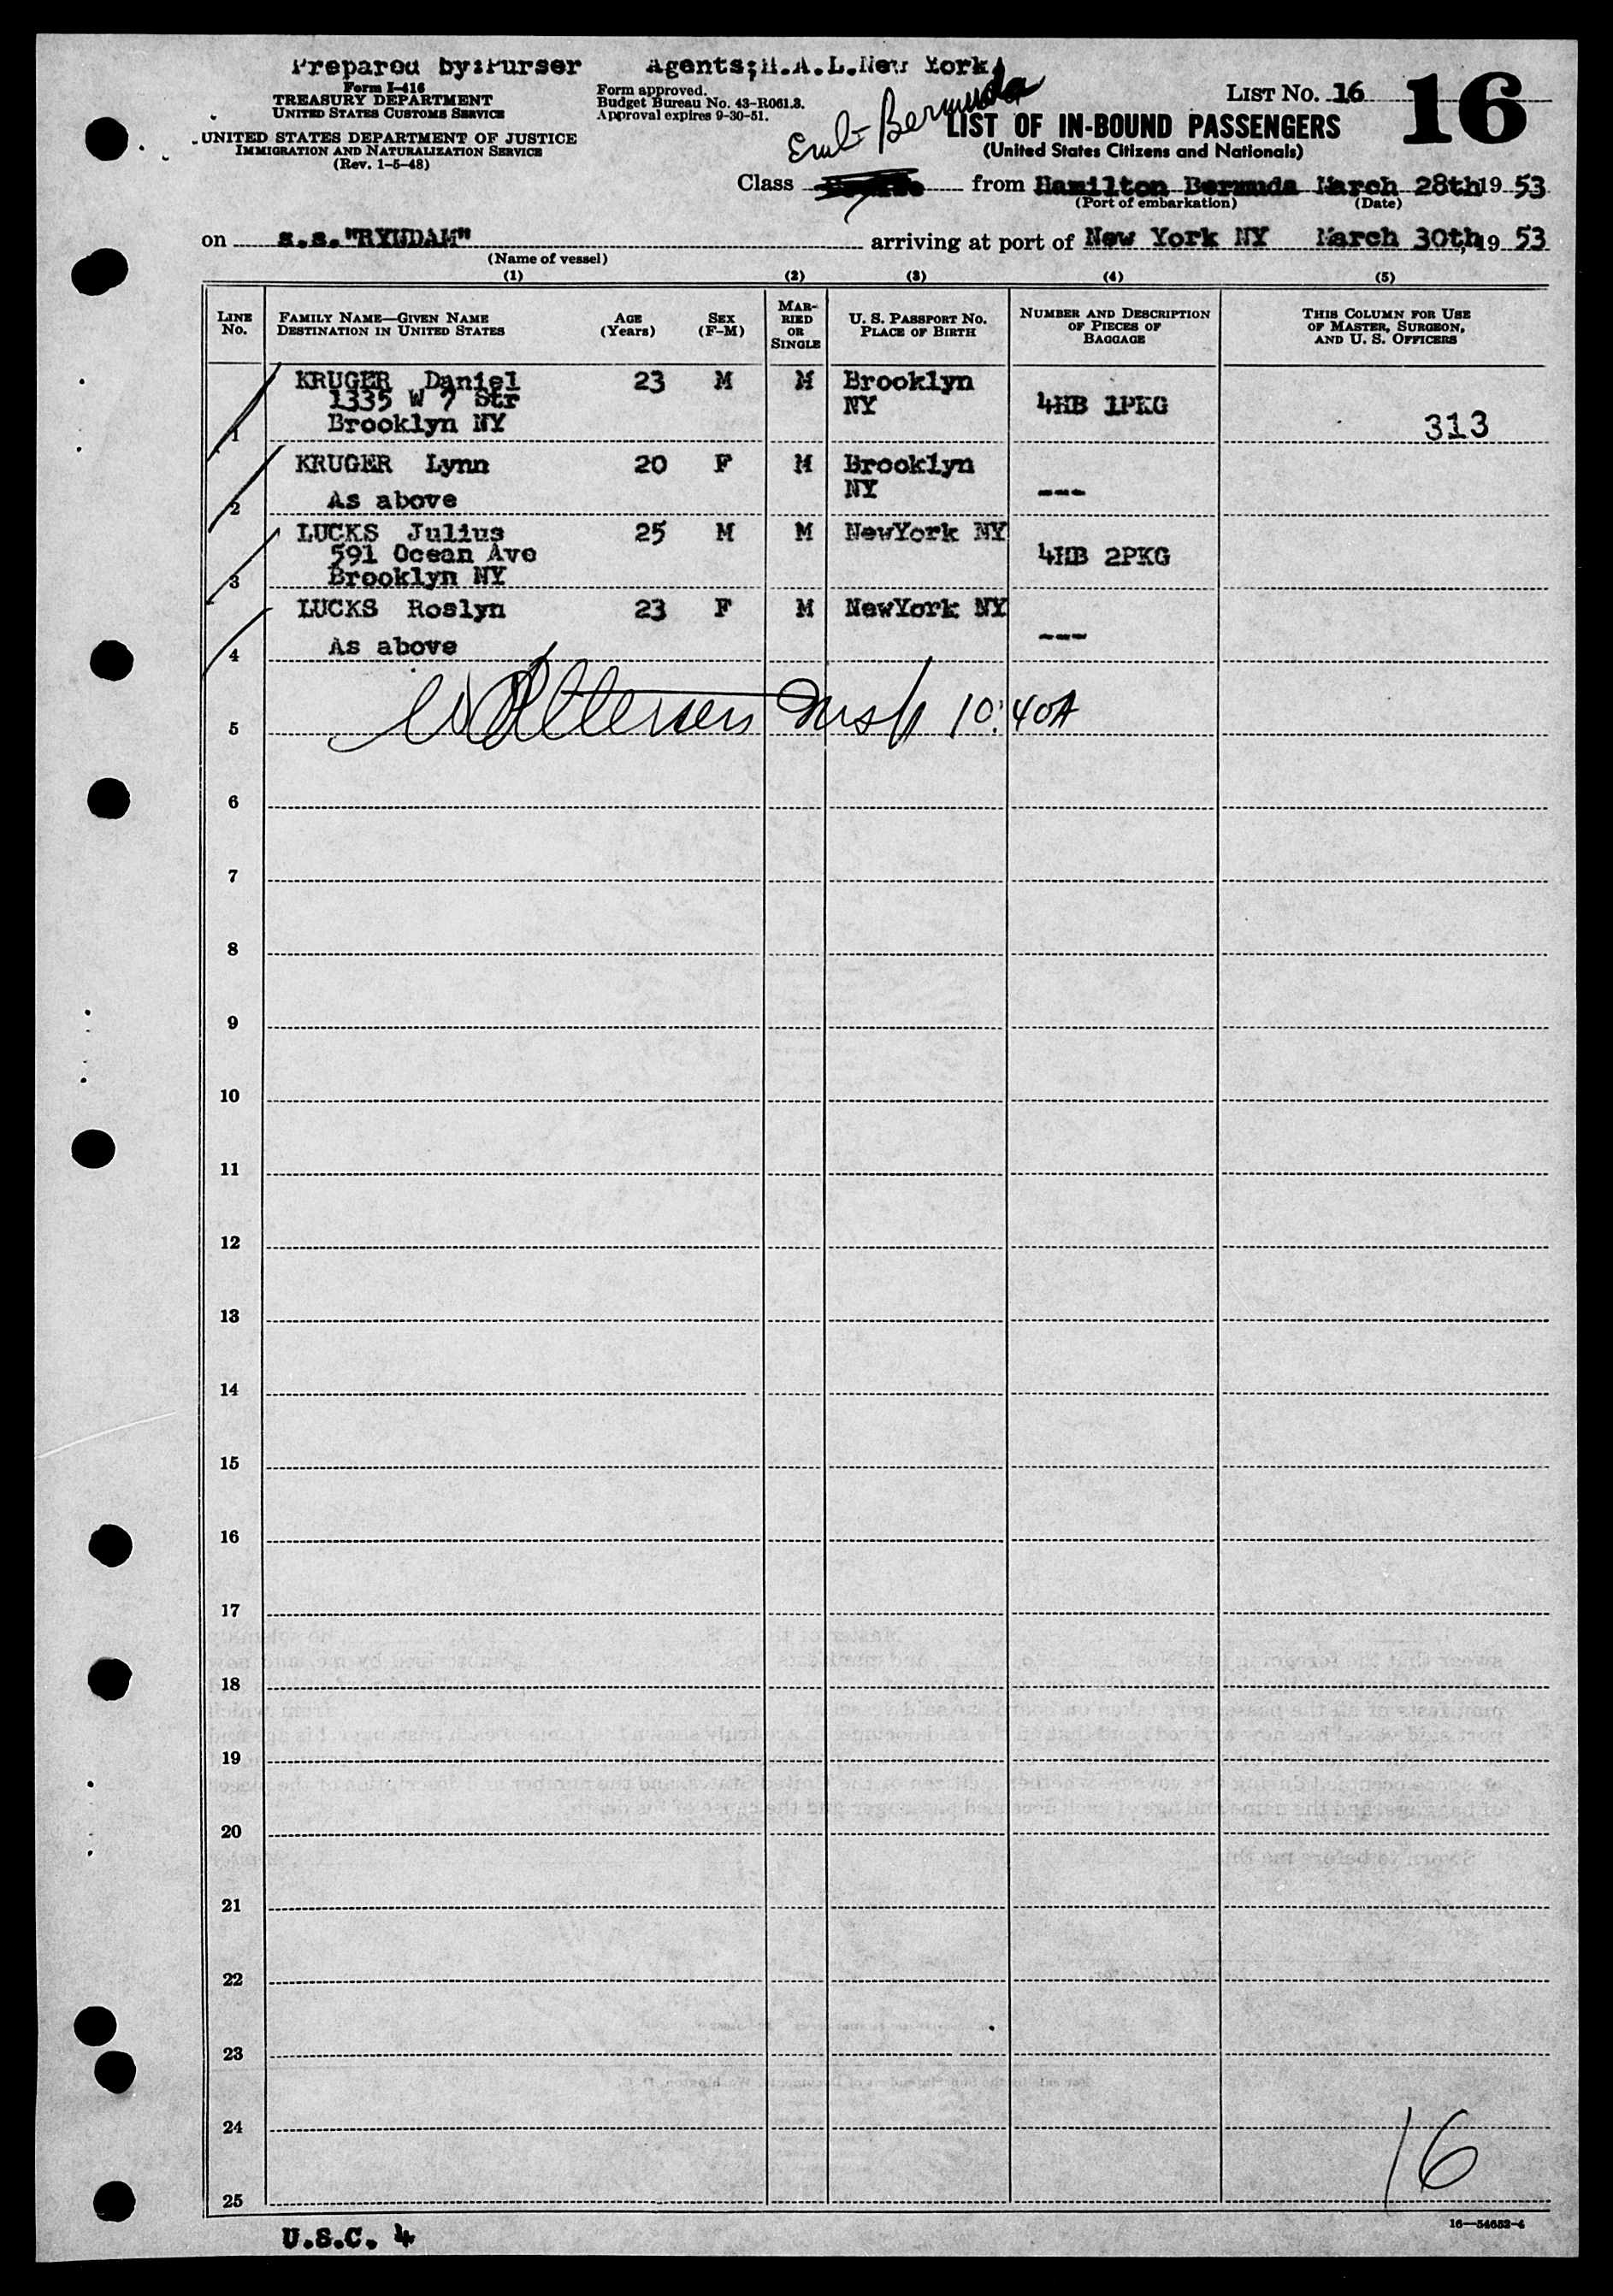 Prepared by:Purser Agents;H.A.L.New York
Form I-416
TREASURY DEPARTMENT
UNITED STATES CUSTOMS SERVICE
UNITED STATES DEPARTMENT OF JUSTICE
IMMIGRATION AND NATURALIZATION SERVICE
(Rev. 1-5-48)
Form approved.
Budget Bureau No. 43-R061.3.
Approval expires 9-30-51.
Emb- Bermuda
LIST NO. 16
16
LIST OF IN-BOUND PASSENGERS
(United States Citizens and Nationals)
Class from Hamilton Bermuda March 28th 19 53
(Port of embarkation) (Date)
on s.s."RYNDAM" arriving at port of New York NY March 30th, 19 53
(Name of vessel)
(1) (2) (3) (4) (5)
LINE No. FAMILY NAME—GIVEN NAME DESTINATION IN UNITED STATES AGE (Years) SEX (F-M) MARRIED OR SINGLE U. S. PASSPORT NO. PLACE OF BIRTH NUMBER AND DESCRIPTION OF PIECES OF BAGGAGE THIS COLUMN FOR USE OF MASTER, SURGEON, AND U. S. OFFICERS
KRUGER Daniel 23 M M Brooklyn
1335 W 7 Str NY 4HB 1PKG
1 Brooklyn NY 313
KRUGER Lynn 20 F M Brooklyn
NY
2 As above ---
LUCKS Julius 25 M M NewYork NY
591 Ocean Ave 4HB 2PKG
3 Brooklyn NY
LUCKS Roslyn 23 F M NewYork NY
4 As above ---
5 10:40A
6
7
8
9
10
11
12
13
14
15
16
17
18
19
20
21
22
23
24
16
25
16—54652-4
U.S.C. 4